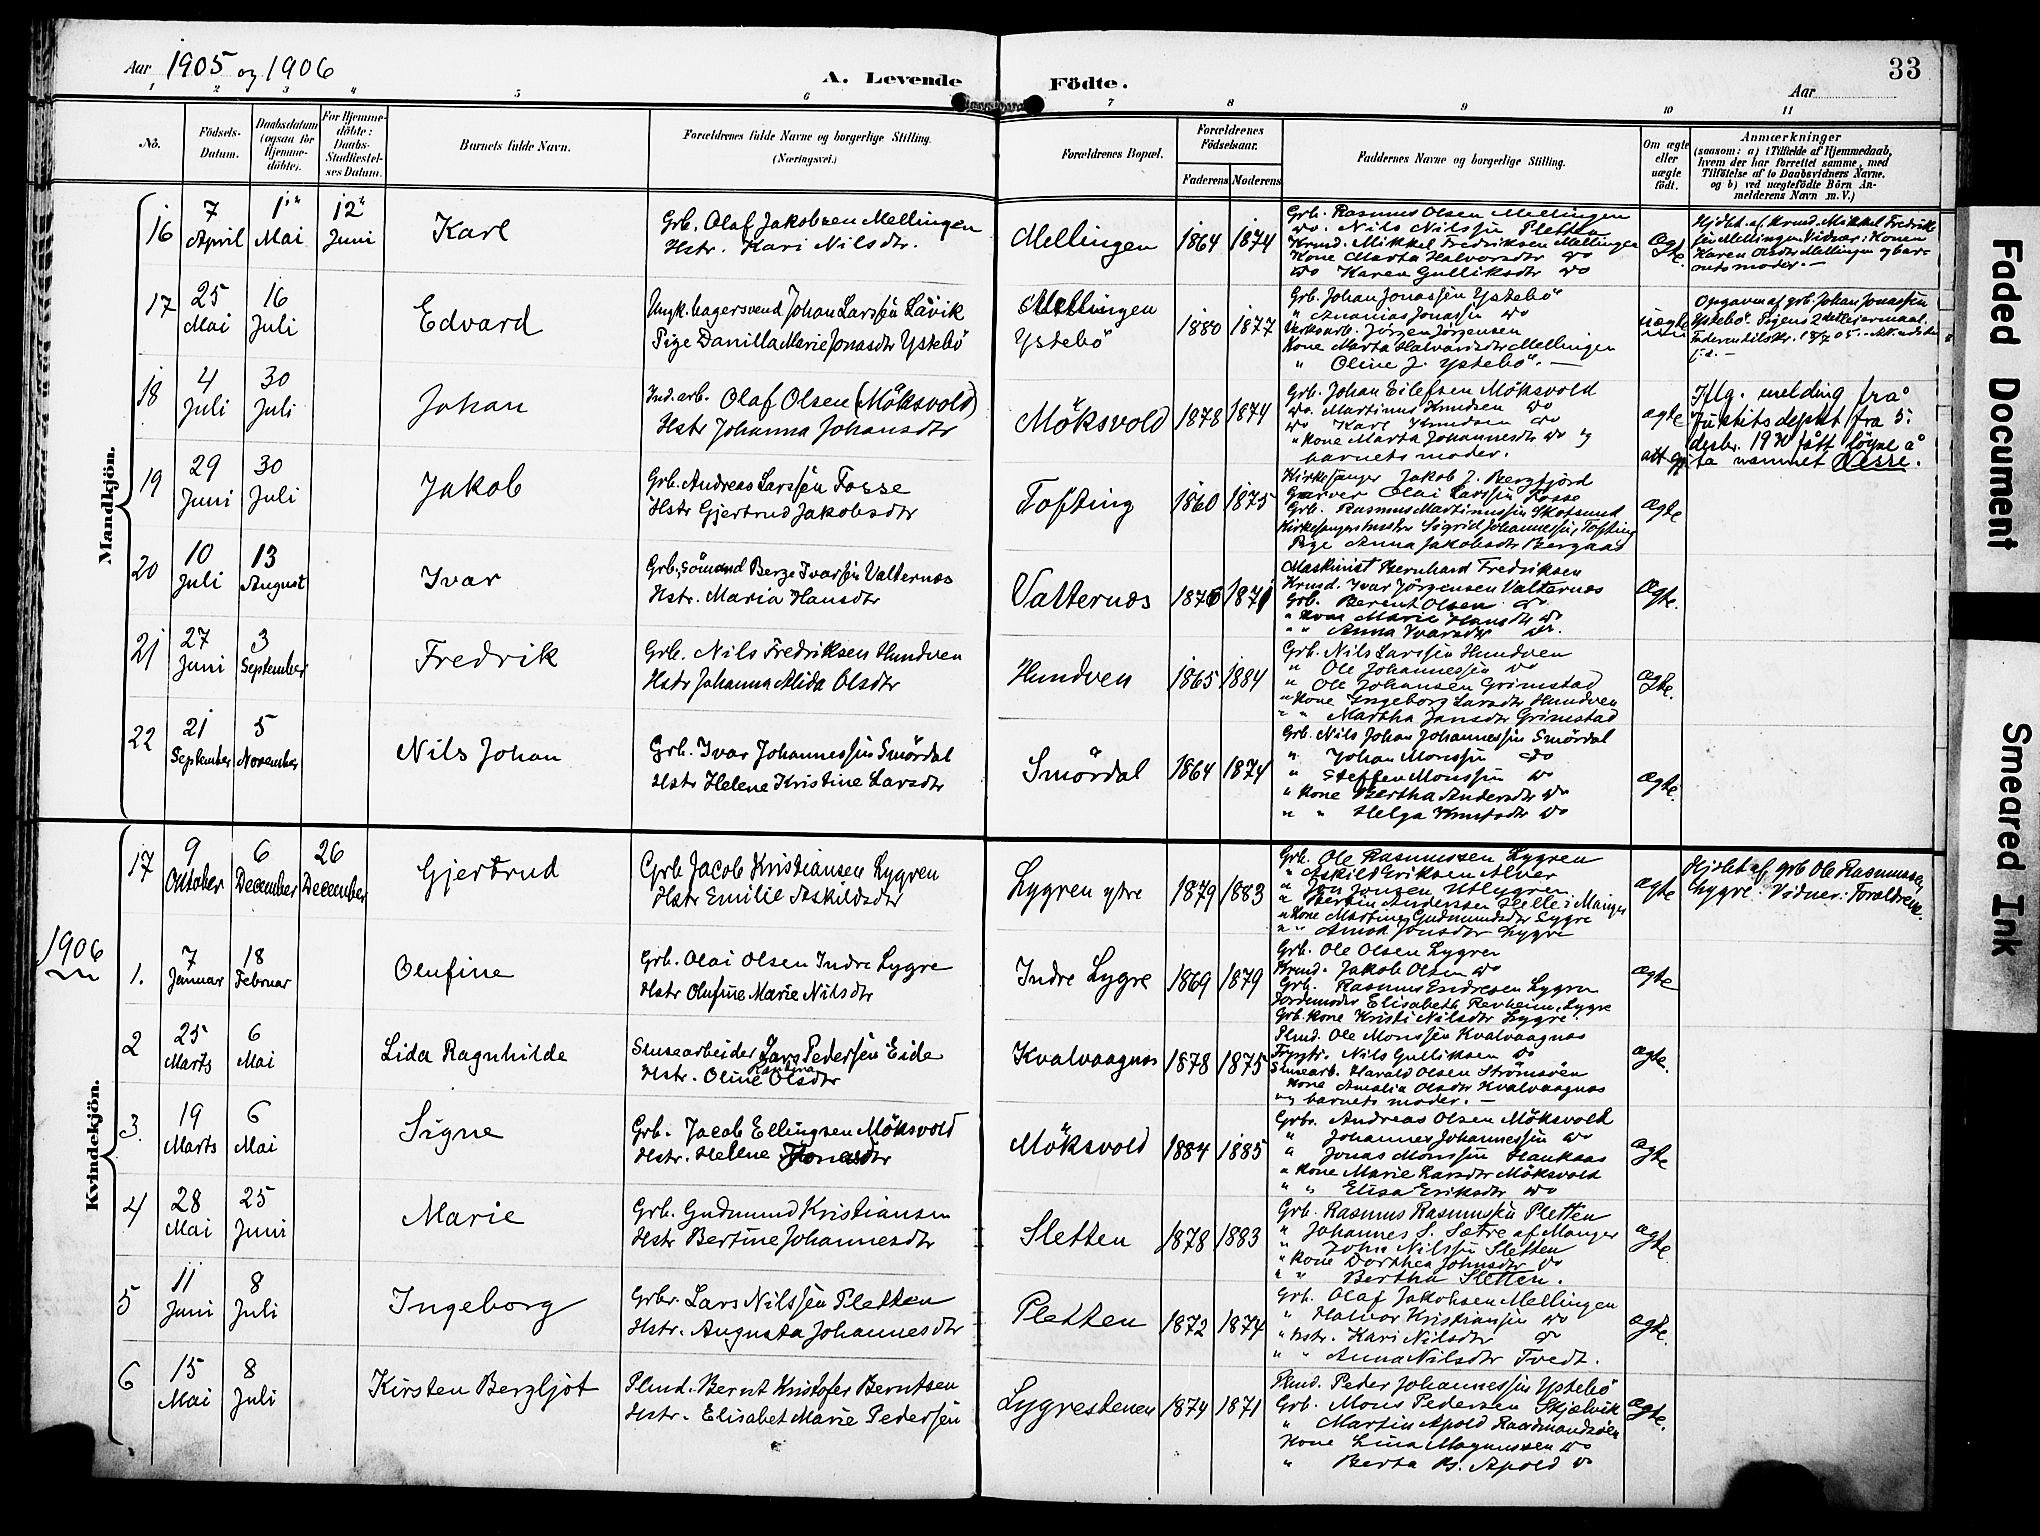 Aar 1905 og 1906
A. Levende
Födte.
33
Aar
1 2 3 4 5 6 7 8 9 10 11
No.
Födsels-
Datum.
Daabsdatum
(ogsaa för
Hjemme-
döbte).
For Hjemme-
döbte:
Daabs-
Stadfæstel-
ses Datum.
Barnets fulde Navn.
Forældrenes fulde Navne og borgerlige Stilling.
(Næringsvei.)
Forældrenes Bopæl.
Forældrenes
Födselsaar.
Faderens Moderens
Faddernes Navne og borgerlige Stilling.
Om ægte
eller
uægte
födt.
Anmærkninger
(saasom: a) i Tilfælde af Hjemmedaab,
hvem der har forrettet samme, med
Tilföielse af to Daabsvidners Navne,
og b) ved uægtefödte Börn An-
melderens Navn m. V.)
Mandkjön.
16
7
April
1
Mai
12
Juni
Karl
Grb. Olaf Jakobsen Mellingen
Hstr. Kari Nilsdtr.
Mellingen
1864 1874
Grb. Rasmus Olsen Mellingen
do. Nils Nilssen Pletten
Krmd. Mikkel Fredriksen Mellingen
Kone Marta Halvorsdtr do
do Karen Gulliksdtr do
Ægte.
Hjdbt. af Krmd. Mikkel Fredrik-
sen Mellingen. Vidner: Konen
Karen Olsdtr Mellingen og bar-
nets moder.
17
25
Mai
16
Juli
Edvard
Ungk. bagersvend Johan Larssen Lävik
Pige Danilla Marie Jonasdtr Ystebö
Mellingen
Ystebö
1880 1877
Grb. Johan Jonassen Ystebö
" Ananias Jonassen do
Verksarb. Jörgen Jörgensen
Kone Marta Halvorsdtr Mellingen
" Oline J. Ystebö.
uægte
Opgaven af grb. Johan Jonassen
Ystebö.
18
4
Juli
30
Juli
Johan
Ind.arb. Olaf Olsen (Möksvold)
Hstr Johanna Johansdtr
Möksvold
1878 1874
Grb. Johan Eilefsen Möksvold
do. Martinus Knudsen do
do Karl Knudsen do
" Kone Marta Johannesdtr do og
barnets moder.
ægte
Iflg. melding frå
Justitsdeptet fra 5.
desbr. 19 fått löyve å
ta namnet Nesse.
19
29
Juni
30
Juli
Jakob
Grb. Andreas Larssen Fosse
Hstr Gjertrud Jakobsdtr
Tofting
1860 1875
Kirkesanger Jakob J. Bergfjord
Garver Olai Larssen Fosse
Grb. Rasmus Martinussen Skotsund
Kirkesangers hustr Sigrid Johannessen, Tofting
Pige Anna Jakobsdtr Bergaas
ægte
20
10
Juli
13
August
Ivar
Grb., sömand Berge Ivarssen Valternæs
Hstr. Maria Hansdtr
Valternæs
1876 1871
Maskinist Bernhard Fredriksen
Krmd. Ivar Jörgensen Valternæs
Grb. Berent Olsen do
" Kone Marie Hansdtr do
" " Anna Ivarsdtr do.
Ægte.
21
27
Juni
3
September
Fredrik
Grb. Nils Fredriksen Hundven
Hstr Johanna Alida Olsdtr
Hundven
1865 1884
Grb. Nils Larssen Hundven
" Ole Johannessen do
" Ole Johansen Grimstad
" Kone Ingeborg Larsdtr Hundven
" " Martha Jansdtr Grimstad
ægte.
22
21
September
5
November
Nils Johan
Grb. Ivar Johannessen Smördal
Hstr Helene Kristine Larsdtr
Smördal
1864 1874
Grb. Nils Johan Johannessen Smördal
" Johan Monssen do
" Steffen Monssen do
" Kone Bertha Andersdtr do
" " Helga Knutsdtr do
ægte.
Kvindekjön.
17
9
Oktober
6
December
26
December
Gjertrud
Grb Jacob Kristiansen Lygren
Hstr Emilie Askildsdtr
Lygren ytre
1879 1883
Grb. Ole Rasmussen Lygren
" Askild Eriksen Alver
" Jon Jonsen Utlygren
" Bertin Anderssen Helle i Manger
" Kone Martine Gudmundsdtr Lygre
" " Anna Jonsdtr Lygre
ægte
Hjdbt af grb Ole Rasmussen
Lygre. Vidner: Forældrene.
1906
1.
7
Januar
18
Februar
Olufine
Grb. Olai Olsen Indre Lygre
Hstr Olufine Marie Nilsdtr
Indre Lygre
1869 1879
Grb. Ole Olsen Lygren
Krmd. Jakob Olsen do
Grb. Rasmus Endresen Lygren
Jordemoder Elisabeth Revheim, Lygre
Grb. Kone Kristi Nilsdtr Lygre.
ægte
2
25
Marts
6
Mai
Lida Ragnhilde
Slusearbeider Lars Pedersen Eide
Hstr. Oline Kartina Olsdtr
Kvalvaagnæs
1878 1875
Plmd. Ole Monssen Kvalvaagnæs
Nils Gulliksen do
Slusearb. Harald Olsen Strömsöen
Kone Amalia Olsdtr Kvalvaagnæs
og barnets moder.
ægte.
3.
19
Marts
6
Mai
Signe
Grb. Jacob Ellingsen Möksvold
Hstr. Helene Jonasdtr
Möksvold
1884 1885
Grbr. Andreas Olsen Möksvold
" Johannes Johannessen do
" Jonas Monssen Haukaas
" Kone Marie Larsdtr Möksvold
" " Elisa Eriksdtr do
ægte
4
28
Mai
25
Juni
Marie
Grb. Gudmund Kristiansen
Hstr Bertine Johannesdtr
Sletten
1878 1883
Grb. Rasmus Rasmussen Pletten
" Johannes S. Sætre af Manger
" John Nilssen Sletten
" Kone Dorthea Johnsdtr do
" " Bertha Sletten.
ægte.
5
11
Juni
8
Juli
Ingeborg
Grbr. Lars Nilssen Pletten
Hstr. Augusta Johannesdtr
Pletten
1872 1874
Grb. Olaf Jakobsen Mellingen
" Halvor Kristiansen do
" Hstr. Kari Nilsdtr do
" " Anna Nilsdtr Tvedt.
ægte.
6
15
Mai
8
Juli
Kirsten Bergljot
Plmd. Bernt Kristofer Berntsen
Hstr. Elisabet Marie Pedersen
Lygrestenen
1874 1871
Plmd. Peder Johannessen Ystebö
Grb. Mons Pedersen Skjælvik
" Martin Apold Raadmandsöen
Kone Lina Magnussen do
" Berta B. Apold do
ægte.
Faded Document
Smeared Ink